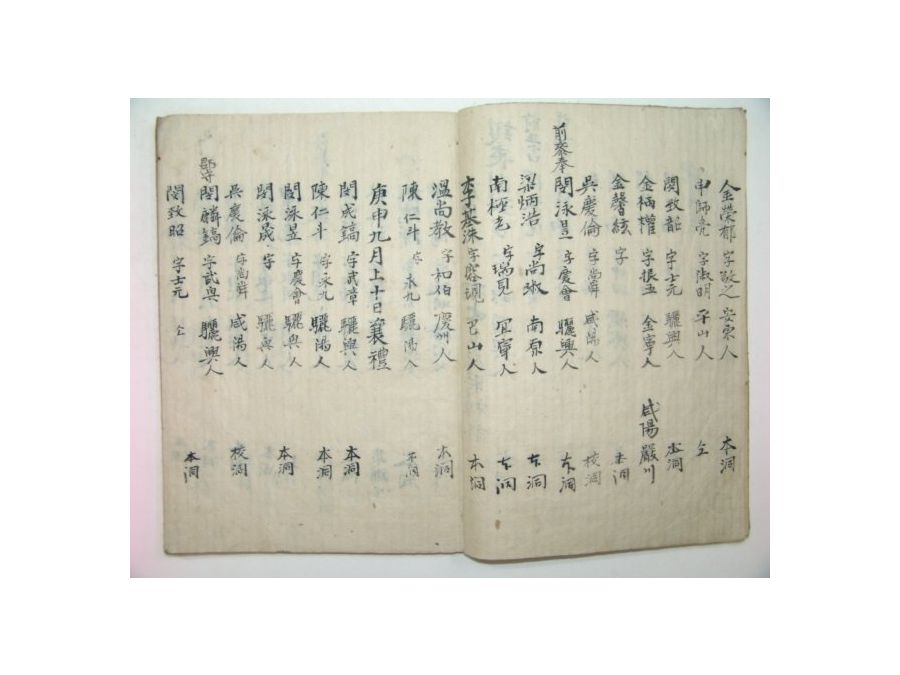 金榮郁 字敬之 安東人 本洞
申師亮 字淑明 平山人 仝
閔致韶 字士元 驪興人 本洞
金柄權 字振玉 金寧人 咸陽嚴川
金馨絃 字 本洞
吳慶倫 字尚舜 咸陽人 校洞
前參奉 閔泳昱 字慶會 驪興人 本洞
梁炳浩 字尚淑 南原人 本洞
南極老 字瑞見 宜寧人 本洞
李基洙 字 巴山人 本洞
溫尚敎 字和伯 慶州人 本洞
陳仁斗 字永九 驪陽人 本洞
庚申九月上十日襄禮
閔成鎬 字武章 驪興人 本洞
陳仁斗 字永九 驪陽人 本洞
閔泳昱 字慶會 驪興人 本洞
閔泳晟 字 驪興人
吳慶倫 字尚舜 咸陽人 校洞
閔麟鎬 字武興 驪興人
閔致昭 字士元 仝 本洞